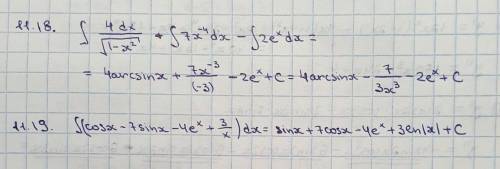 11.18. ∫ 4dx/√(1-x²) + ∫7x⁻⁴dx - ∫2eˣdx =
= 4arcsinx + 7x⁻³/(-3) - 2eˣ + C = 4arcsinx - 7/3x³ - 2eˣ + C
11.19. ∫(cosx - 7sinx - 4eˣ + 3/x)dx = sinx + 7cosx - 4eˣ + 3ln|x| + C